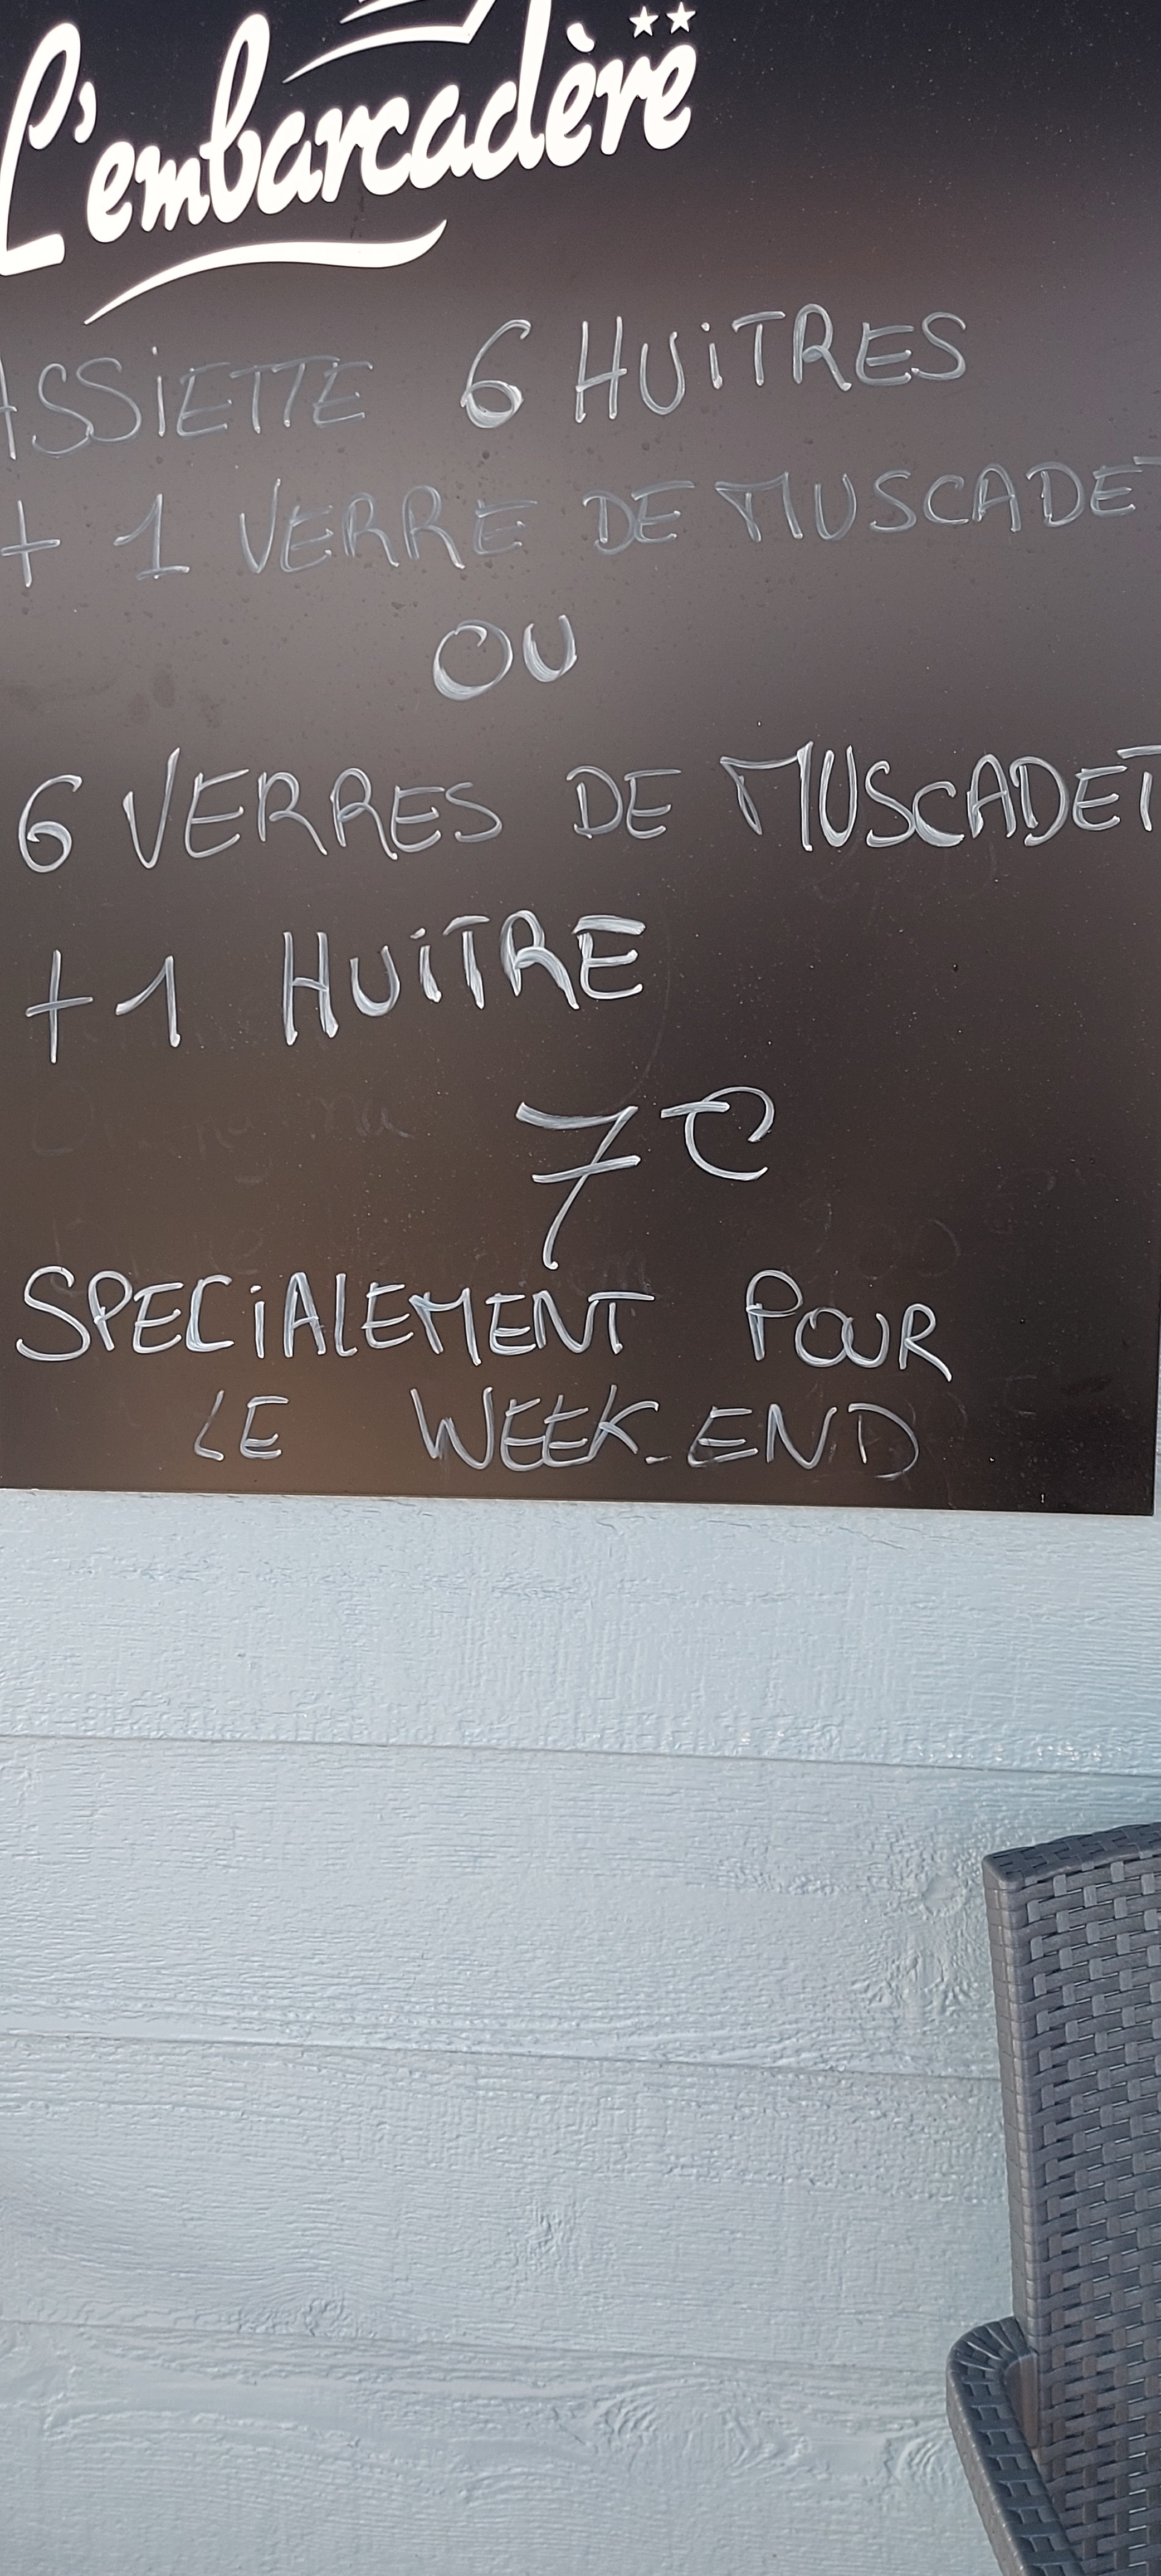 L'embarcadère
ASSIETTE 6 HUITRES
+ 1 VERRE DE MUSCADET
OU
6 VERRES DE MUSCADET
+1 HUITRE
7€
SPECIALEMENT POUR
LE WEEK-END